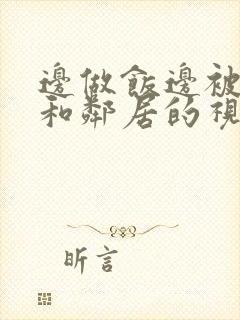 邊做飯邊被
和鄰居的視
昕言